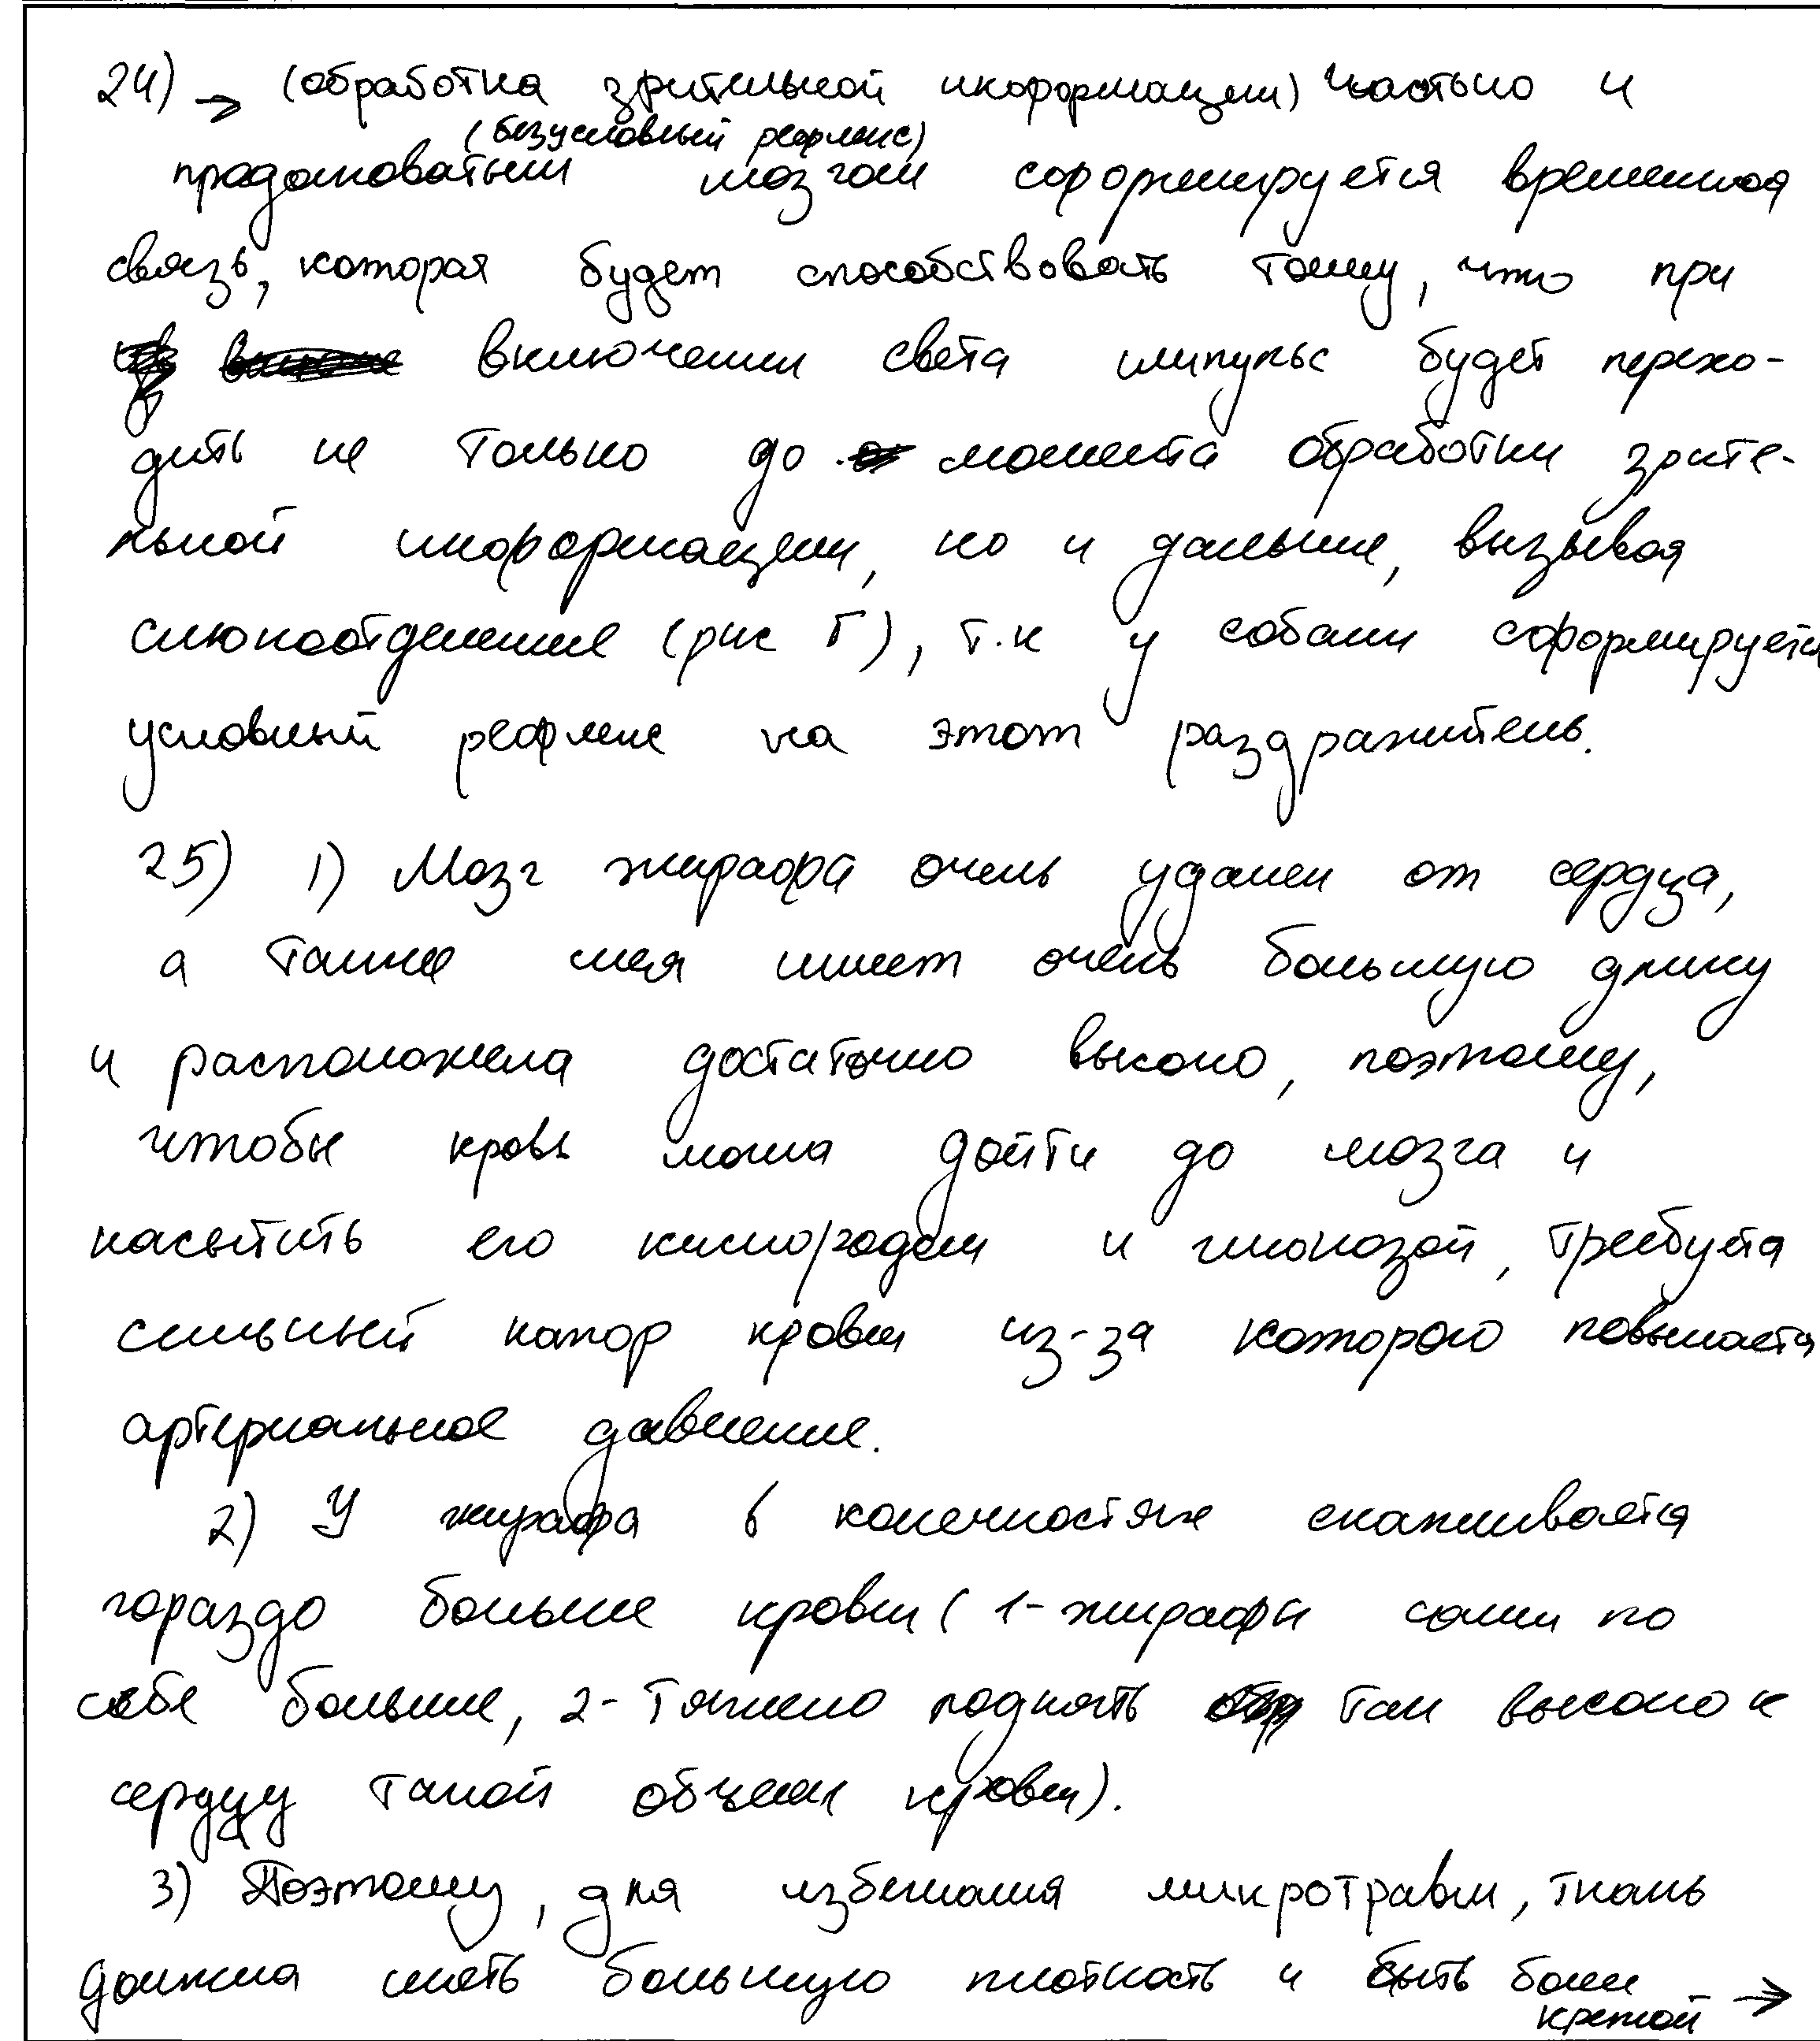 24) → (обработка зрительной информации) частью и
(безусловный рефлекс)
продолговатым мозгом сформируется временная
связь, которая будет способствовать тому, что при
включении света импульс будет перехо-
дить не только до момента обработки зрите-
льной информации, но и дальше, вызывая
слюноотделение (рис Г), т.к у собаки сформируется
условный рефлекс на этот раздражитель.
25) 1) Мозг жирафа очень удален от сердца,
а также шея имеет очень большую длину
и расположена достаточно высоко, поэтому,
чтобы кровь могла дойти до мозга и
насытить его кислородом и глюкозой, требуется
сильный напор крови из-за которого повышается
артериальное давление.
2) У жирафа в конечностях скапливается
гораздо больше крови (1-жирафы сами по
себе больше, 2-тяжело поднять так высоко к
сердцу такой объем крови).
3) Поэтому, для избежания микротравм, ткань
должна иметь большую плотность и быть более
крепкой →